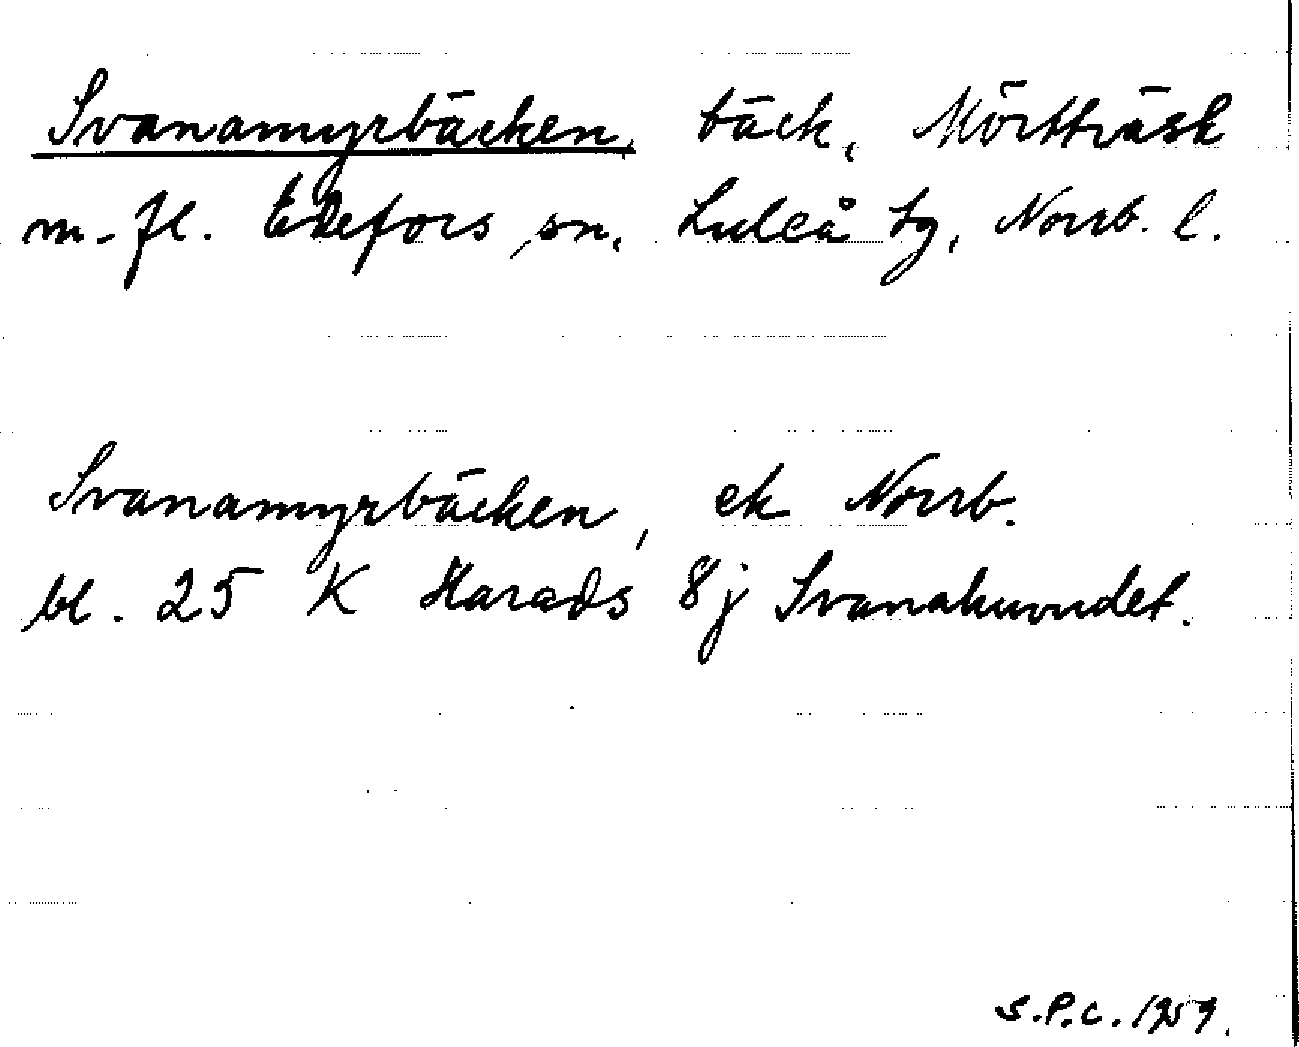 Svanamyrbäcken, bäck, Mörtträsk
m. fl. Edefors sn, Luleå tg, Norrb. l.
Svanamyrbäcken, ek Norrb.
bl. 25 K Harads 8j Svanahuvudet.
S.P.C. 1959.